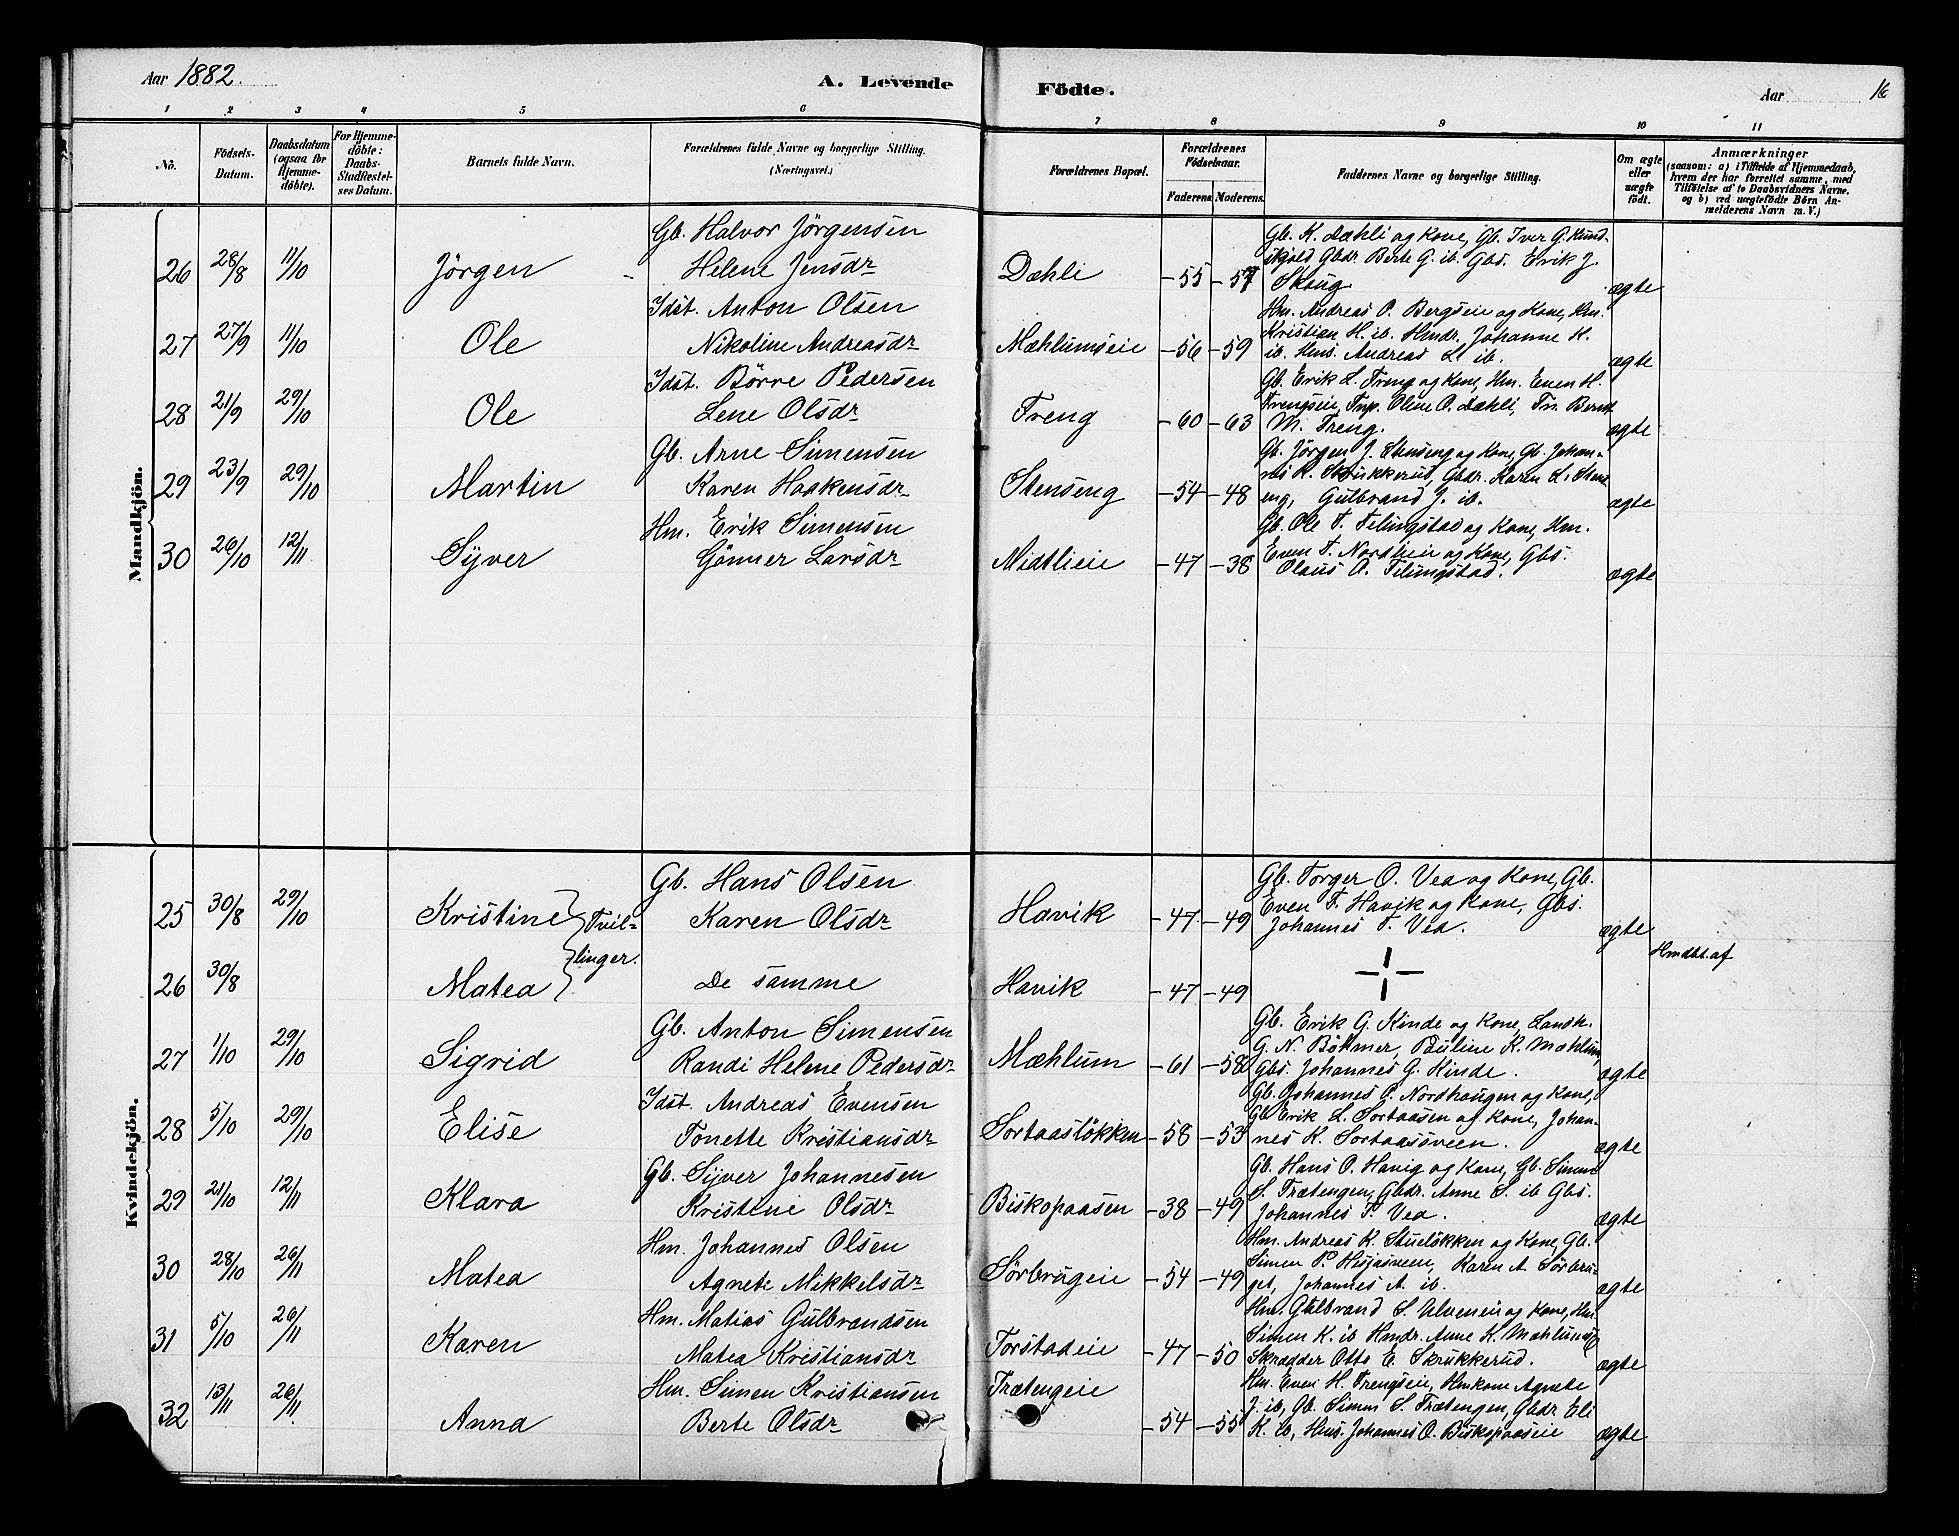 Aar 1882.
A. Levende Födte.
Aar 16
1 2 3 4 5 6 7 8 9 10 11
No. Födsels-Datum. Daabsdatum (ogsaa for Hjemmedöbte). For Hjemmedöbte: Daabs-Stadfestelses Datum. Barnets fulde Navn. Forældrenes fulde Navne og borgerlige Stilling. (Næringsvei.) Forældrenes Bopæl. Forældrenes Födselsaar. Faderens Moderens. Faddernes Navne og borgerlige Stilling. Om ægte eller uægte födt. Anmærkninger (saasom: a) i Tilfælde af Hjemmedaab, hvem der har forrettet samme, med Tilföielse af to Daabsvidners Navne, og b) ved uægtefödte Börn Anmelderens Navn m. V.)
Mandkjön.
Gb. Halvor Jörgensen Gb. K. Dæhli og Kone, Gb. Iver G. Rund-
26 28/8 11/10 Jörgen Helene Jensdr Dæhli -55 -57 skjold Gbdr. Berte G. ib. Gbs. Erik J.
Skoug. ægte
Idst. Anton Olsen Hm. Andreas P. Bergseie og Kone, Hm.
27 27/9 11/10 Ole Nikoline Andreasdr Mæhlumseie -56 -59 Kristian H. ib. Hmdr. Johanne K.
ib. Hms. Andreas L. ib. ægte
Idst. Börre Pedersen Gb. Erik L. Freng og Kone, Hm. Even H.
28 21/9 29/10 Ole Lene Olsdr Freng -60 -63 Frengseie, Tnp. Oline O. Dæhli, Tn. Bernt
M. Freng. ægte
Gb. Arne Simensen Gb. Jörgen J. Stenseng og Kone, Gb. Johan-
29 23/9 29/10 Martin Karen Haakensdr Stenseng -54 -48 nes K. Skrukkerud, Gbdr. Karen L. Stens
eng, Gulbrand J. ib. ægte
Hm. Erik Simensen Gb. Ole T. Filingstad og Kone, Hm.
30 26/10 12/11 Syver Gönner Larsdr Midtlieie -47 -38 Even T. Nordlieie og Kone, Gbs.
Olaus O. Filingstad. ægte
Kvindekjön.
Gb. Hans Olsen Gb. Torger O. Vea og Kone, Gb.
25 30/8 29/10 Kristine Tvil- Karen Olsdr Havik -47 -49 Even T. Havik og Kone, Gbs.
Johannes T. Vea. ægte
linger. Hmdbt. af
26 30/8 Matea De samme Havik -47 -49
Gb. Anton Simensen Gb. Erik G. Kinde og Kone, Landh.
27 1/10 29/10 Sigrid Randi Helene Pedersdr Mæhlum -61 -58 G. N. Bökmer, Pauline K. Mæhlum,
Gbs. Johannes G. Kinde. ægte
Idst. Andreas Evensen Gb. Johannes P. Nordhaugen og Kone,
28 5/10 29/10 Elise Tonette Kristiansdr Sortaaslökken -58 -53 Gb Erik L. Sortaasen og Kone, Johan-
nes K. Sortaassveen. ægte
Gb. Syver Johannesen Gb. Hans O. Havig og Kone, Gb. Simen
29 21/10 12/11 Klara Kristine Olsdr Biskopaasen -38 -49 S. Trætengen, Gbdr. Anne S. ib Gbs.
Johannes T. Vea. ægte
Hm. Johannes Olsen Hm. Andreas K. Stuelökken og Kone, Gb.
30 28/10 26/11 Matea Agnete Mikkelsdr Sörbrugeie -54 -49 Simen P. Hisjasveen, Karen A. Sörbru-
get, Johannes A. ib. ægte
Hm. Matias Gulbrandsen Hm. Gulbrand S. Ulveneie og Kone, Hm
31 5/10 26/11 Karen Matea Kristiansdr Torstadeie -47 -50 Simen K. ib Hmdr. Anne K. Mæhlumse
Skrædder Otto E. Skrukkerud. ægte
Hm. Simen Kristiansen Trætengeie Hm. Even H. Frengseie, Hmkone Agnete
32 13/11 26/11 Anna Berte Olsdr -54 -55 J. ib, Gb. Simen S. Trætengen, Gbdr. Eli
K. ib, Hms. Johannes O. Biskopaaseie ægte